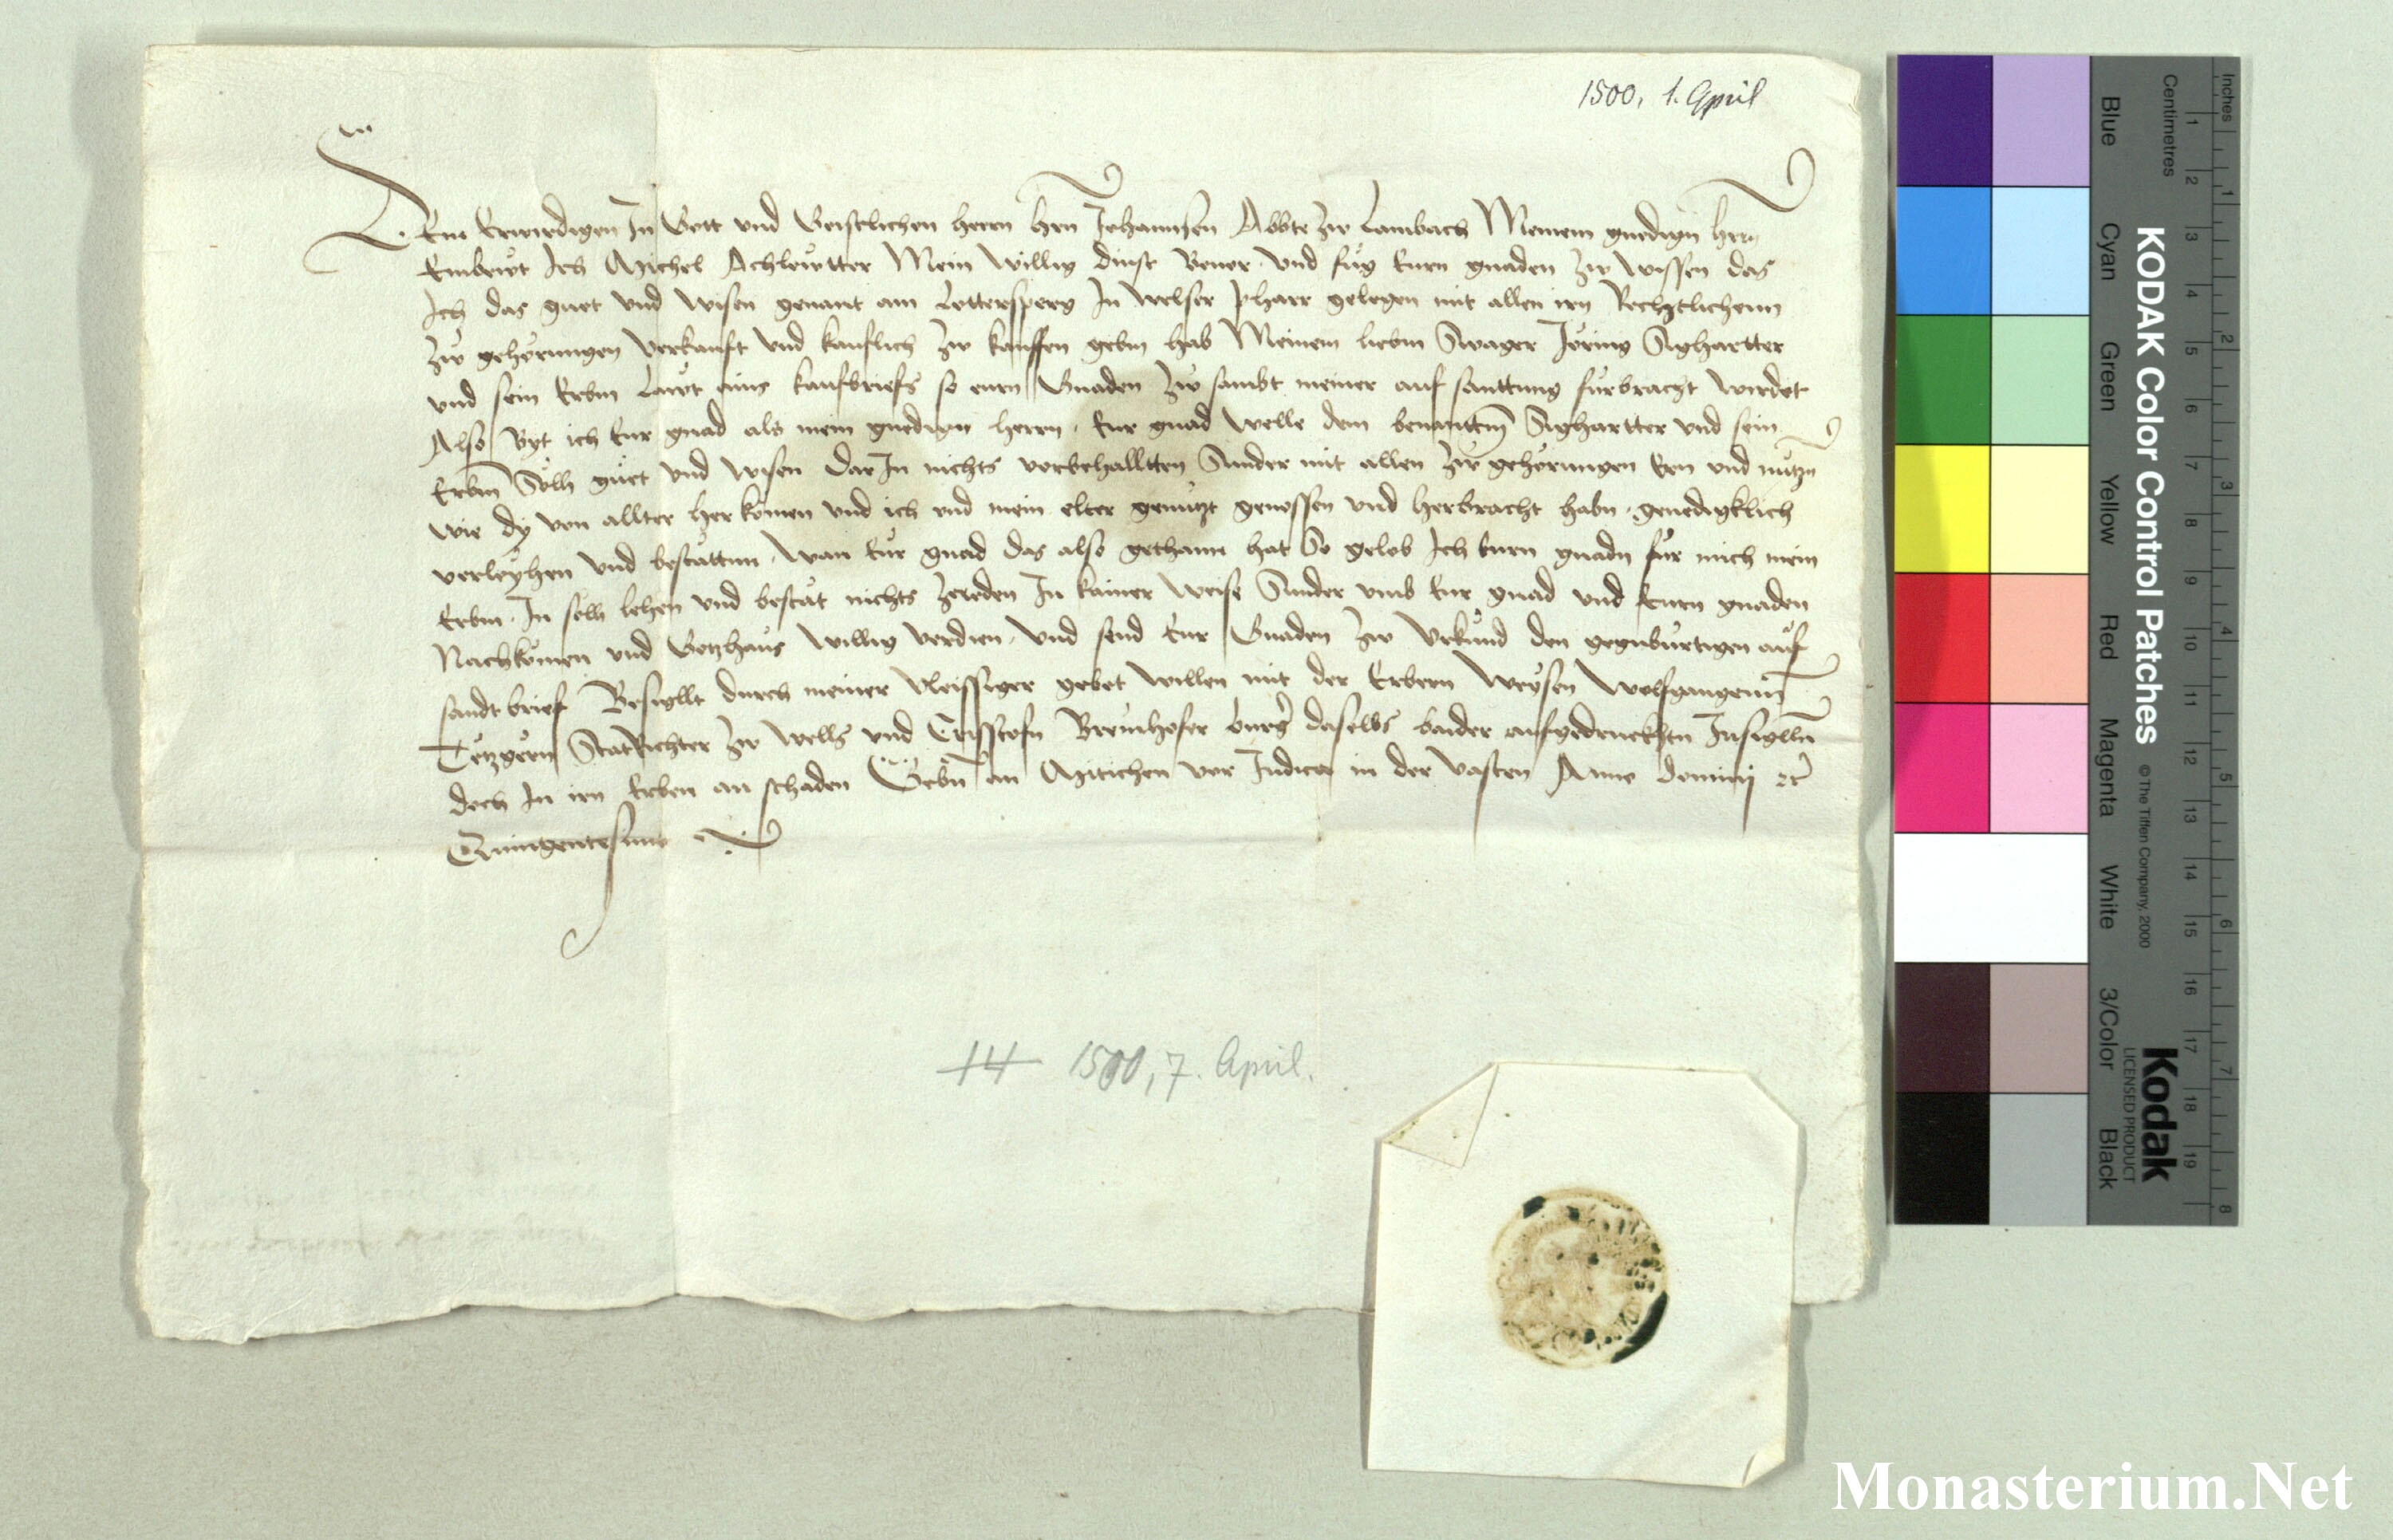 1500, 1. April
Dem Erwirdigen In Gott vnd Geistlichen herrn hrn Johannsen Abbte zw Lambach Meinem gnedign hern
Embewt Ich Michel Achlewtter Mein willig dinst Beuor vnd fúg Eurn gnaden zw wissen das
Ich das guet vnd wisen genant am Lettersperg In welser pharr gelegen mit allen irn Rechtlichenn
zw gehorungen verkaufft vnd kauflich zw kauffen gebm hab Meinem liebm Swager Jöring Sighartter
vnd sein Erbm Lawt ains kaufbriefs so eurn Gnaden zw sambt meiner auf santtung fúrbracht wirdet
Also Byt ich Eur gnad als mein gnedign herrn Eur gnad welle dem benanttm Sighartter vnd sein
Erbm Sölh gúet vnd wisen Dar In nichts vorbehalltten Sunder mit allen zw gehorungen Ern vnd nútzn
wie dy von allter her komen vnd ich vnd mein elter genútzt genossen vnd herbracht habn genedigklich
verleyhen vnd bestättnn wan Eur gnad das also gethann hat So gelob Ich Eurn gnadn fúr mich mein
Erbm In sölh lehen vnd bestät nichts zereden In kainer weise Sunder vmb Eur gnad vnd Eurn gnaden
Nachkomen vnd Gotzhaus willig verdien vnd send Eur Gnaden zw vrkund den gegnbúrtigen auf
sandt brief Besigllt durch meiner vleissiger gebet willen mit der Erbern weysen wolfgangenn
Tetzgern StatRichter zw wells vnd Cristofn Breunhofer burgr daselbs baider aufgedruckhtn Insiglln
doch In irn Erben an schaden Gebn an Mitichen vor Judica in der vasten Anno dominij etc
Quingentesimo
14 1500, 7. April.
KODAK Color Control Patches
© The Tiffen Company, 2000
Kodak
LICENSED PRODUCT
Blue Cyan Green Yellow Red Magenta White 3/Color Black
Centimetres 1 2 3 4 5 6 7 8 9 10 11 12 13 14 15 16 17 18 19
Inches 1 2 3 4 5 6 7 8
Monasterium.Net